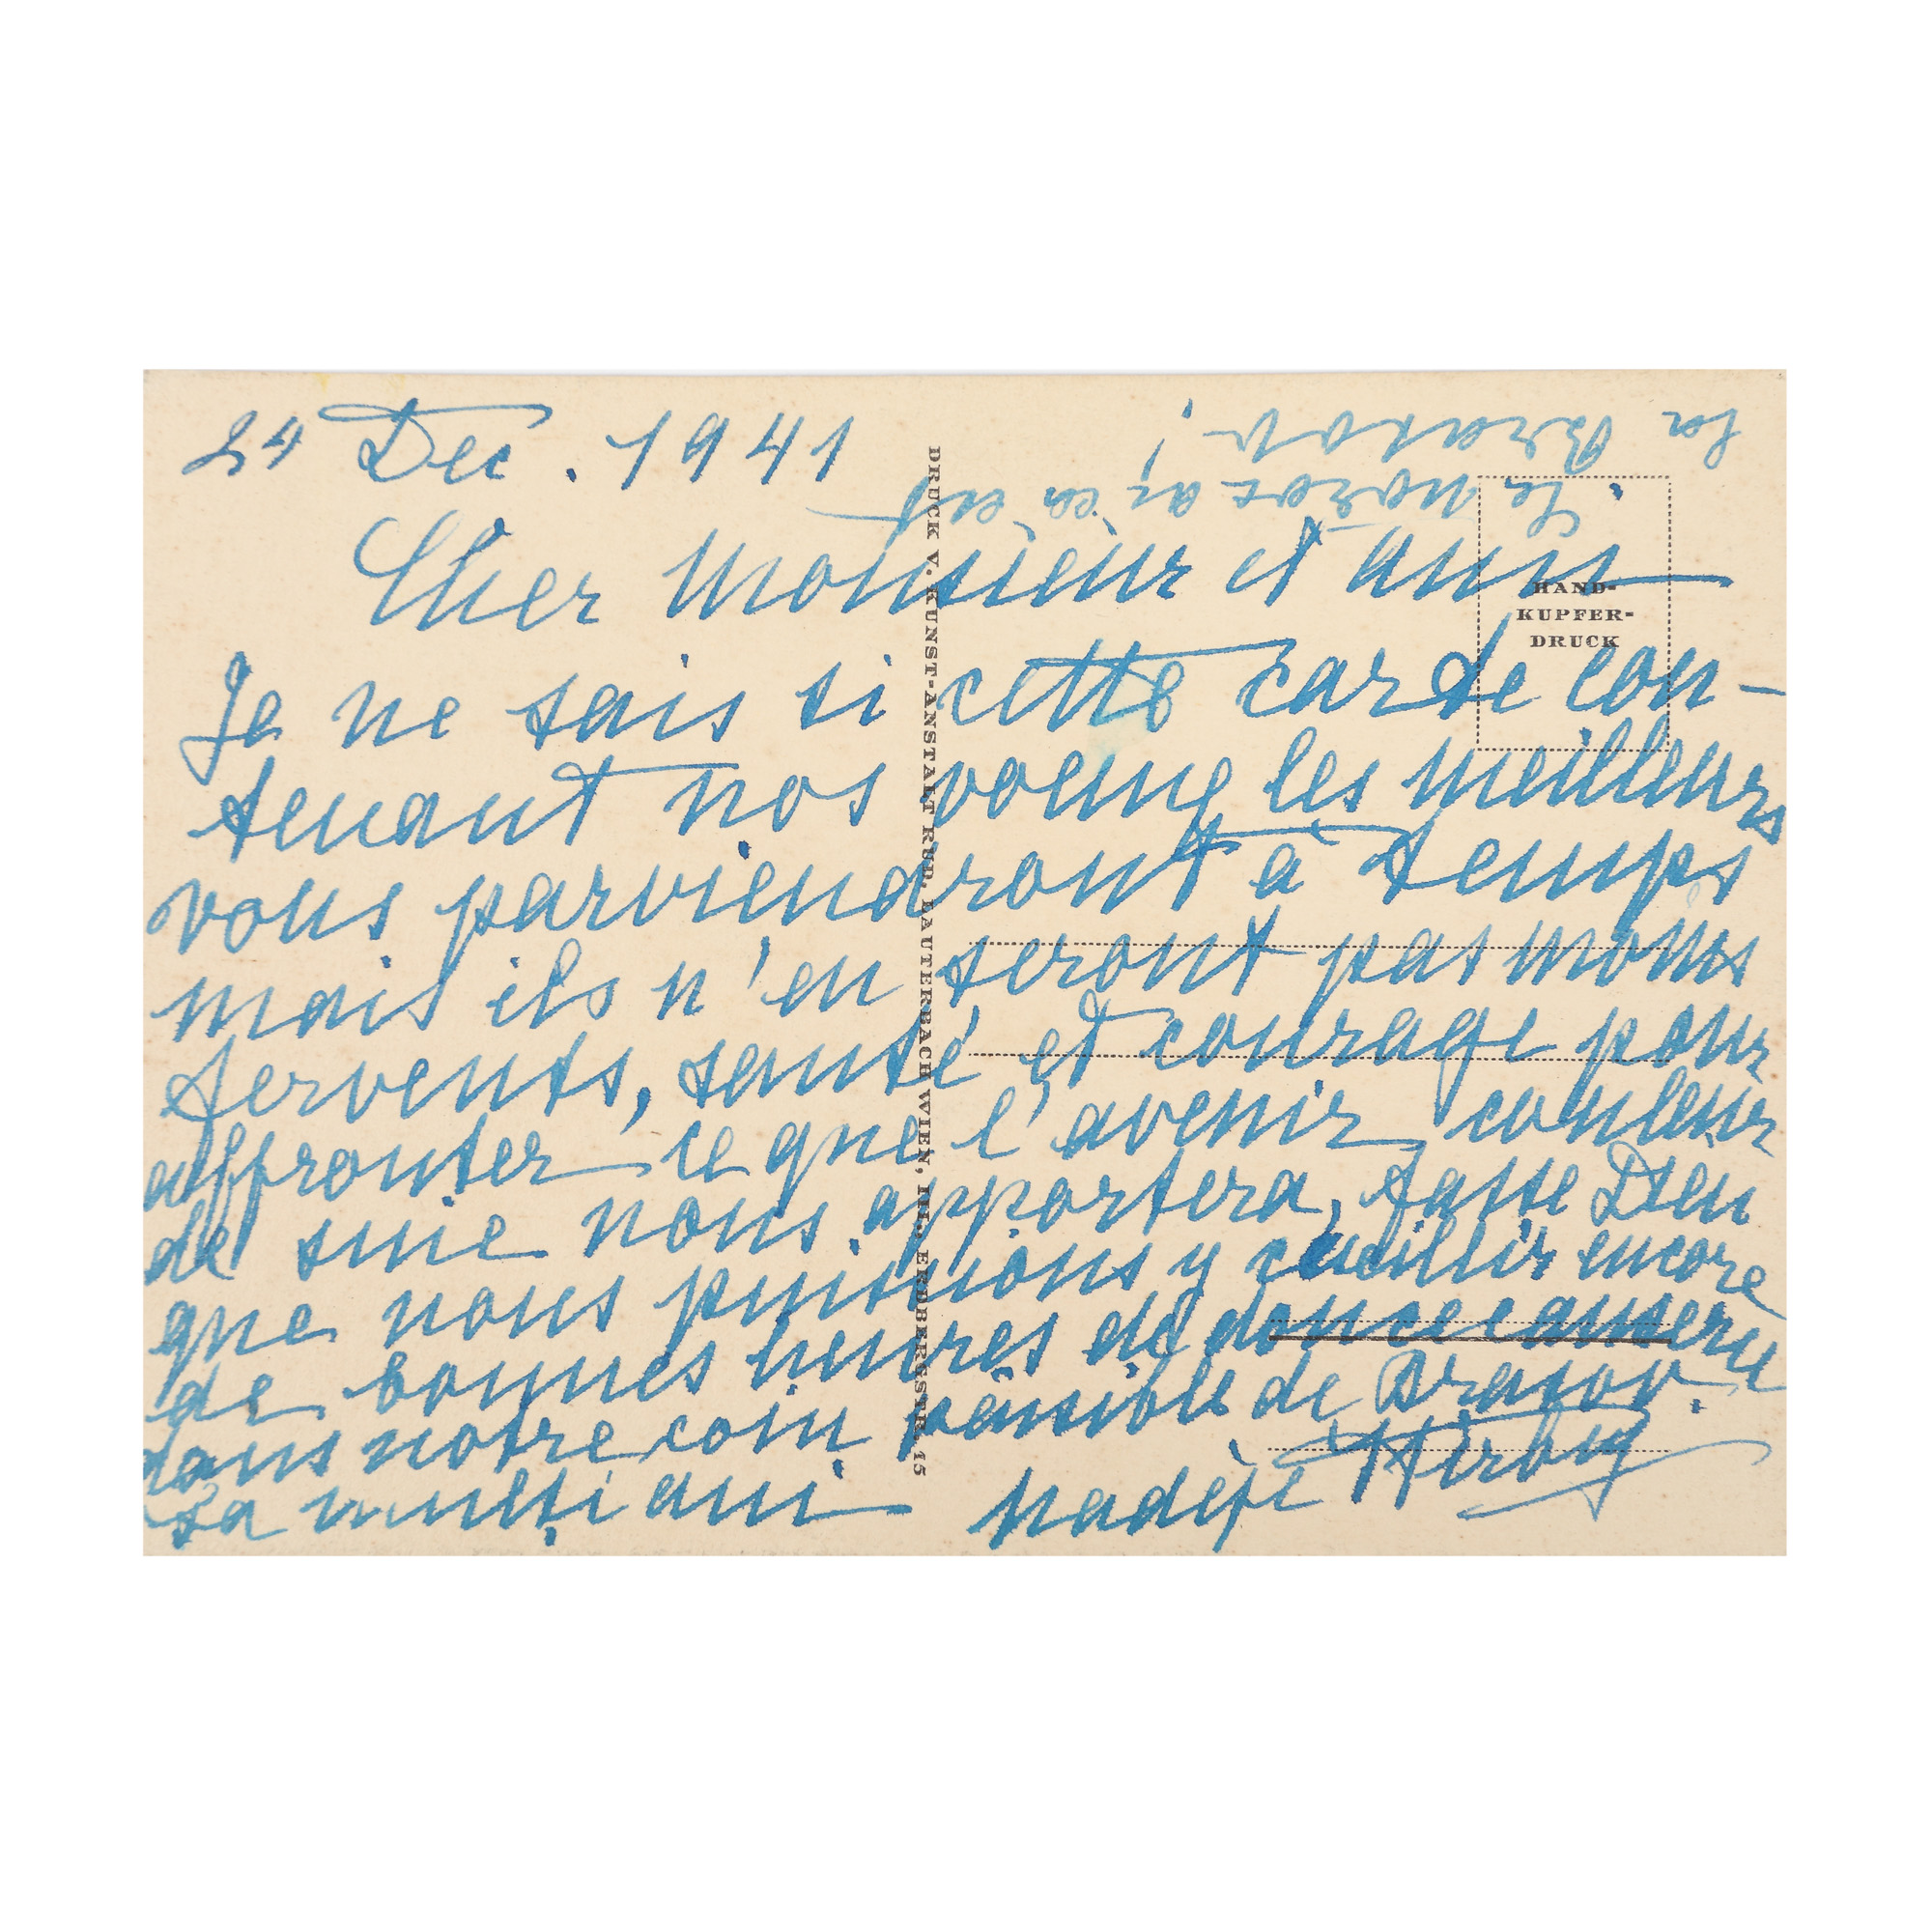 24 Dec. 1941
Cher Monsieur et ami
Je ne sais si cette carte con-
tenant nos voeux les meilleurs
vous parviendront à temps
mais ils n'en seront pas moins
fervents, santé et courage pour
affronter ce que l'avenir couleur
de suie nous apportera, fasse Dieu
que nous puissions y cueillir encore
de bonnes heures de douce causerie
dans notre coin paisible de Brasov.
La multi ani Nadèje Hirby
la Brasov!
HAND-
KUPFER-
DRUCK
DRUCK V. KUNST-ANSTALT RUD. LAUTERBACH WIEN, III., ERDBERGSTR. 15